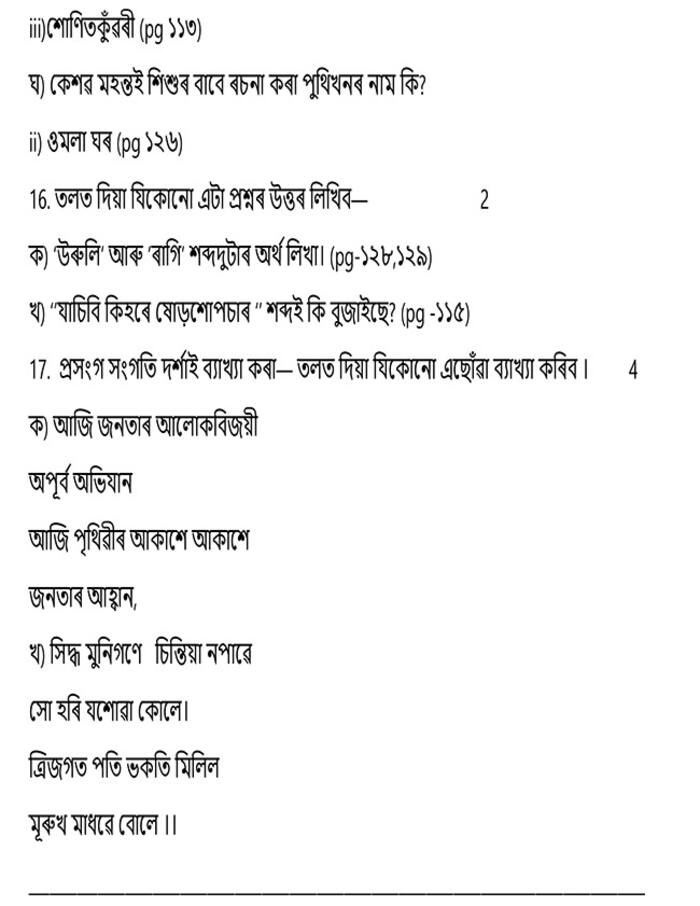 iii)শোণিতকুঁৱৰী (pg ১১৩)
ঘ) কেশৱ মহন্তই শিশুৰ বাবে ৰচনা কৰা পুথিখনৰ নাম কি?
ii) ওমলা ঘৰ (pg ১২৬)
16. তলত দিয়া যিকোনো এটা প্ৰশ্নৰ উত্তৰ লিখিব— 2
ক) ‘উৰুলি’ আৰু ‘ৰাগি’ শব্দদুটাৰ অৰ্থ লিখা। (pg-১২৮,১২৯)
খ) “যাচিবি কিহৰে ষোড়শোপচাৰ ” শব্দই কি বুজাইছে? (pg -১১৫)
17. প্ৰসংগ সংগতি দৰ্শাই ব্যাখ্যা কৰা— তলত দিয়া যিকোনো এছোঁৱা ব্যাখ্যা কৰিব। 4
ক) আজি জনতাৰ আলোকবিজয়ী
অপূৰ্ব অভিযান
আজি পৃথিৱীৰ আকাশে আকাশে
জনতাৰ আহ্বান,
খ) সিদ্ধ মুনিগণে চিন্তিয়া নপাৱে
সো হৰি যশোৱা কোলে।
ত্ৰিজগত পতি ভকতি মিলিল
মূৰুখ মাধৱে বোলে ।।